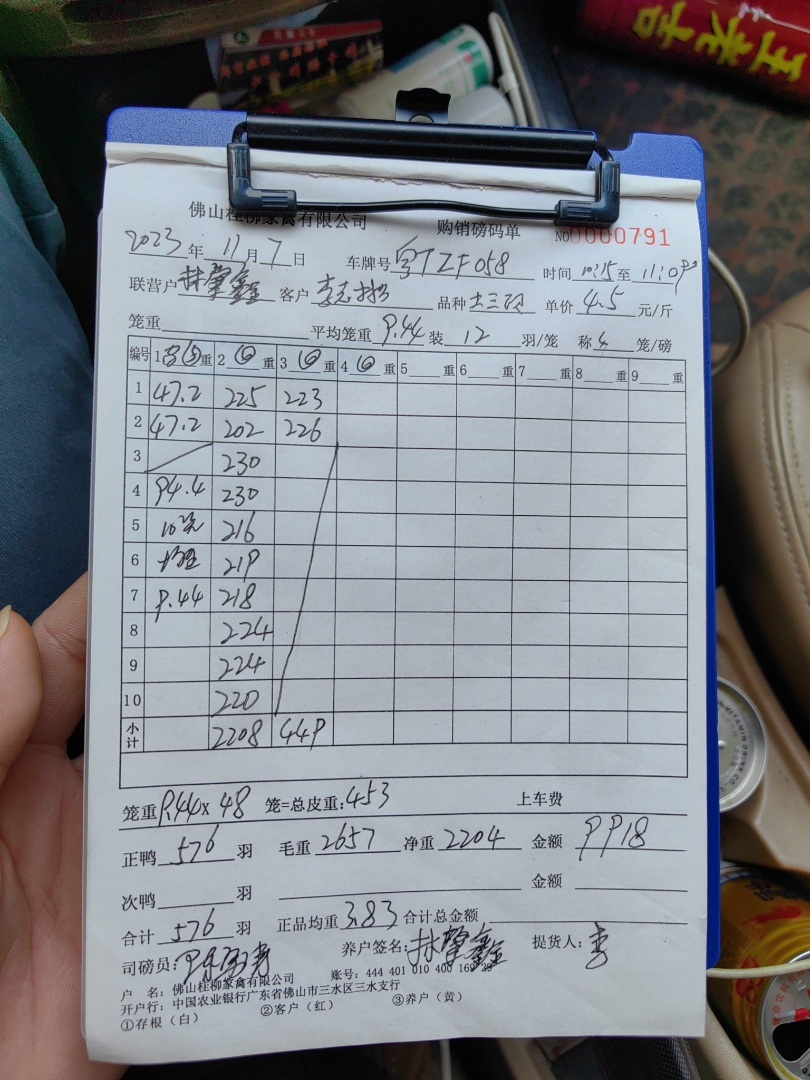 佛山桂柳家禽有限公司 购销磅码单 NO 0000791
2023年11月7日 车牌号粤TZF058 时间10:15至11:0
联营户 林肇鑫 客户 李志 品种 土三 单价 4.5 元/斤
笼重 平均笼重 9.44 装 12 羽/笼 称 4 笼/磅
编号 1 重 2 重 3 重 4 重 5 重 6 重 7 重 8 重 9 重
1 47.2 225 223
2 47.2 202 226
3 230
4 94.4 230
5 10笼 216
6 均重 219
7 9.44 218
8 224
9 224
10 220
小计 2208 449
笼重9.44×48 笼=总皮重:453 上车费
正鸭 576 羽 毛重 2657 净重 2204 金额 9918
次鸭 羽 金额
合计 576 羽 正品均重 3.83 合计总金额
司磅员: 养户签名: 林肇鑫 提货人: 李
户 名: 佛山桂柳家禽有限公司 账号: 444 401 010 400 169 39
开户行: 中国农业银行广东省佛山市三水区三水支行
①存根(白) ②客户(红) ③养户(黄)
王老吉